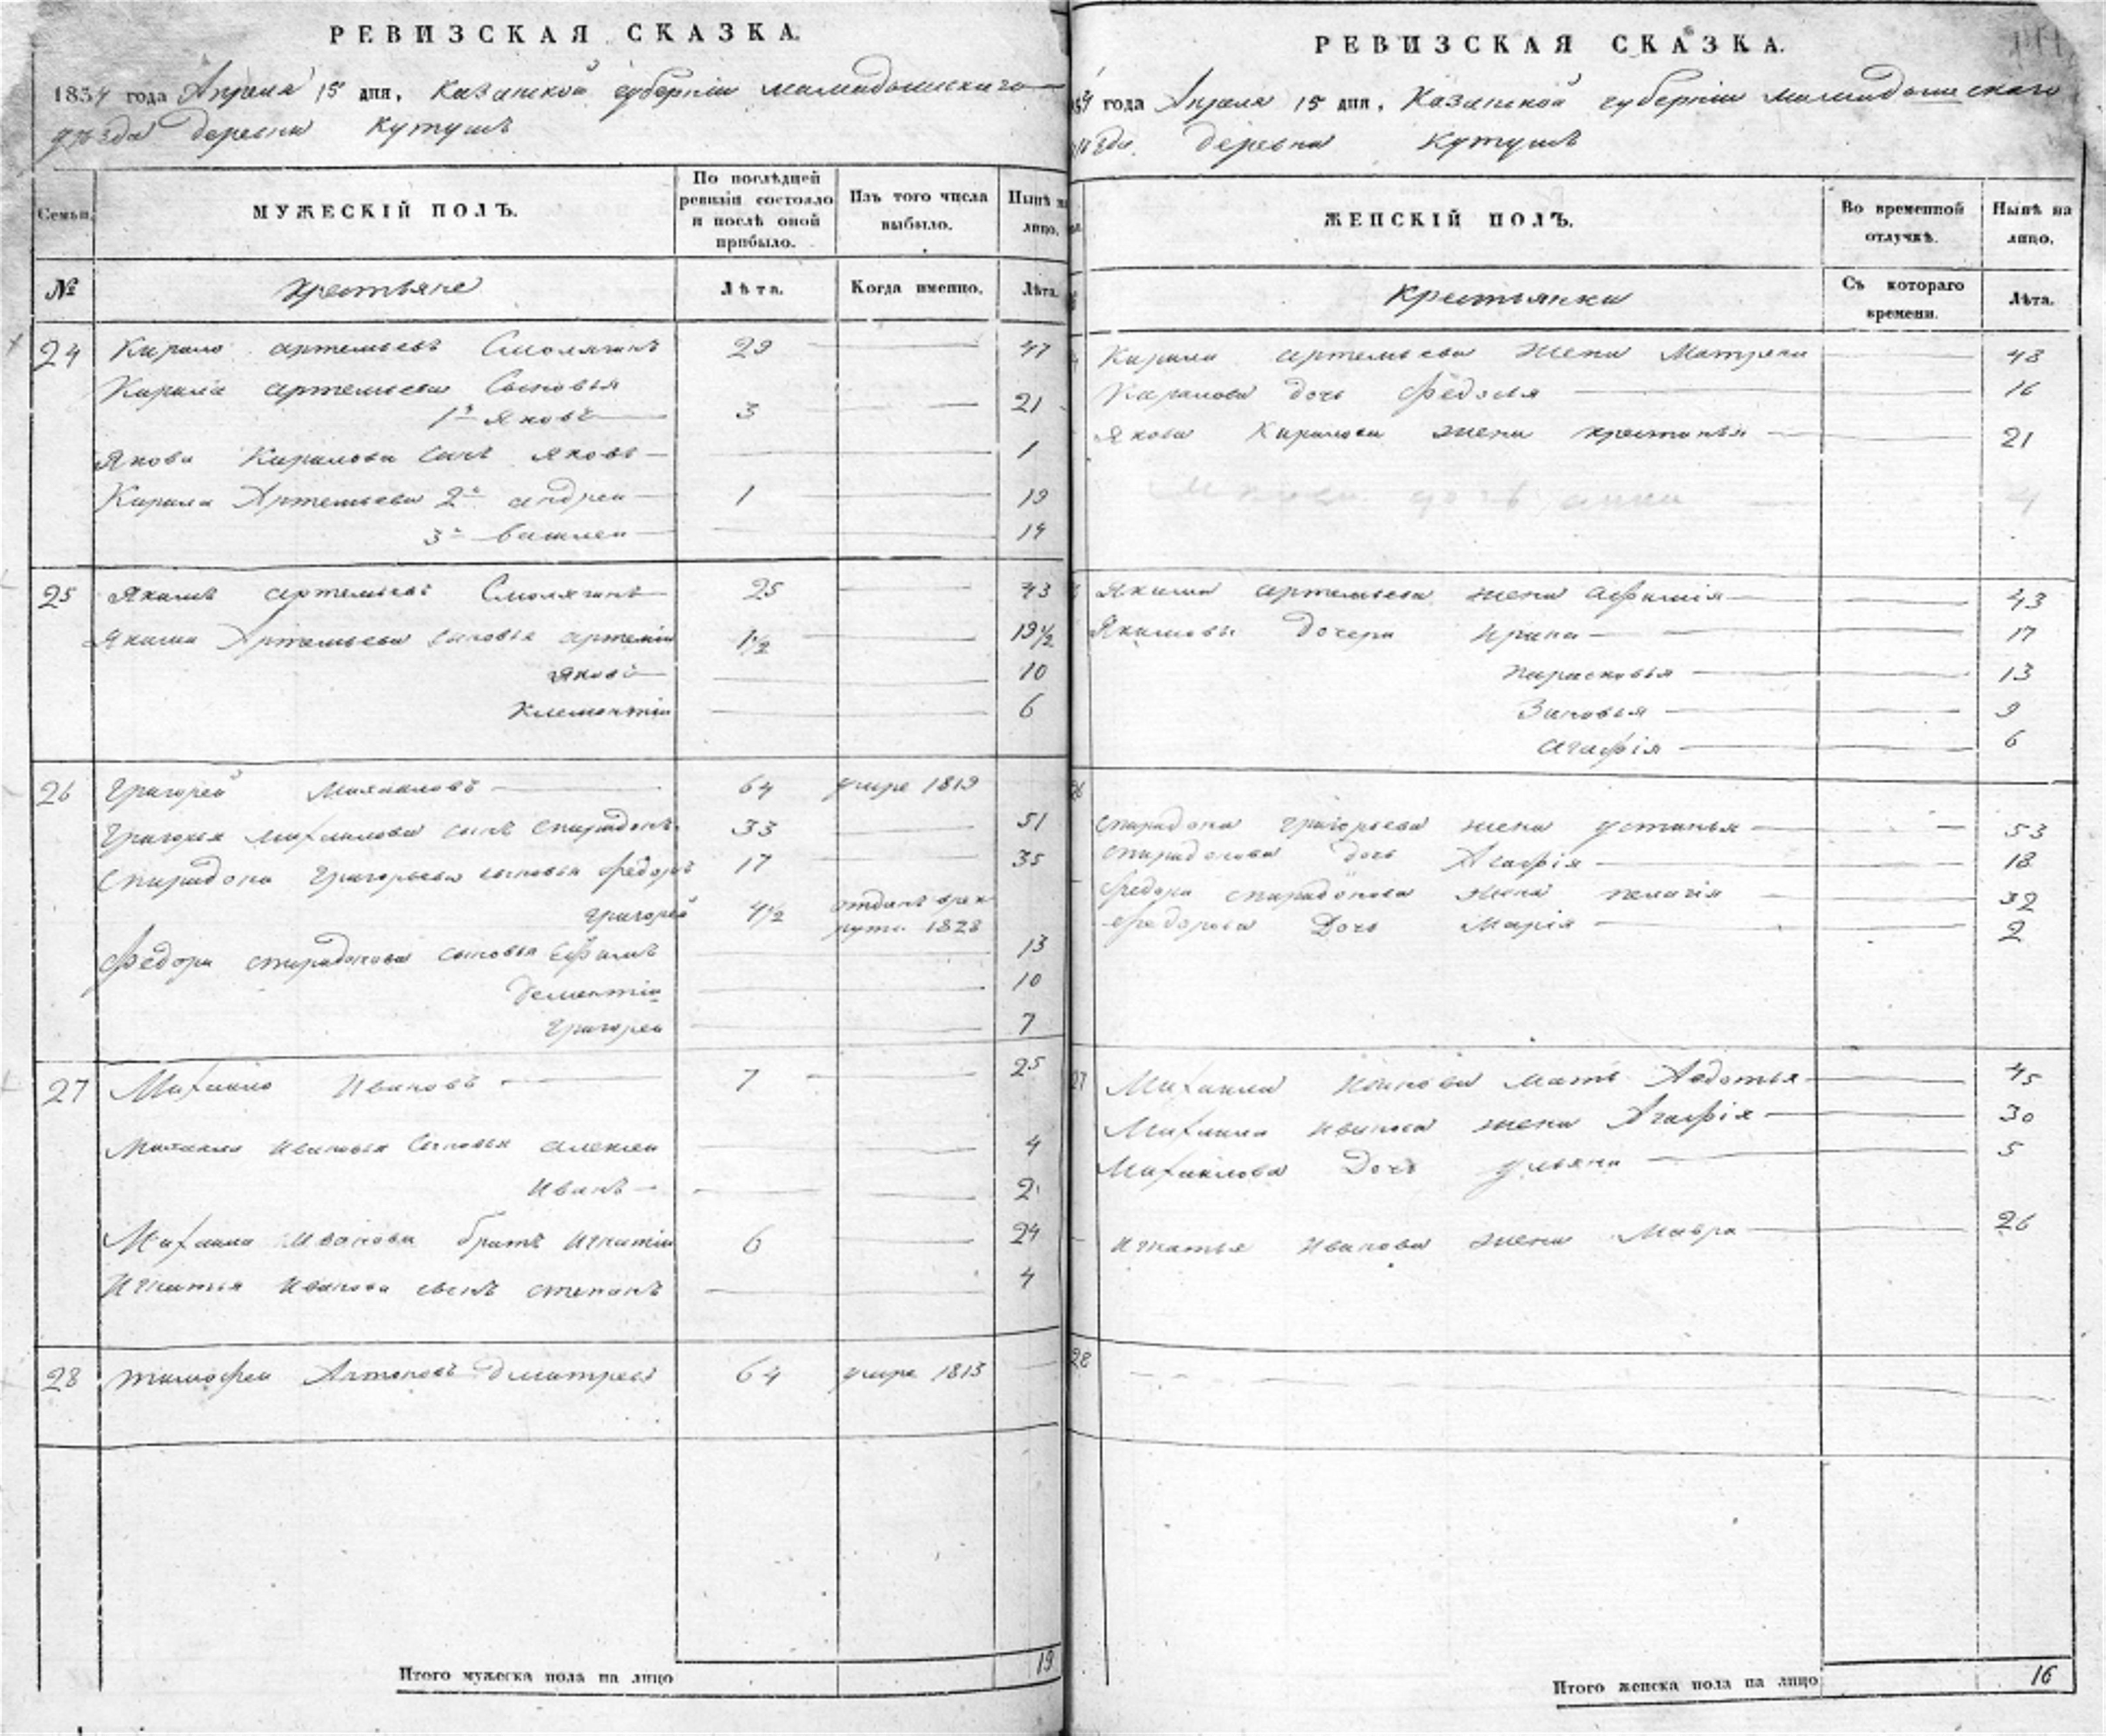 РЕВИЗСКАЯ СКАЗКА.
1834 года Апреля 15 дня, Казанской губернии мамадышскаго
уѣзда деревни Кутушъ
Семьи.
МУЖЕСКІЙ ПОЛЪ.
По послѣдней ревизіи состояло и послѣ оной прибыло.
Изъ того числа выбыло.
Нынѣ на лицо.
№
крестьяне
Лѣта.
Когда именно.
Лѣта.
24 Кирило артемьевъ Смолягинъ 29 47
Кирила артемьева Сыновья
1й Яковъ 3 21
Якова Кирилова сынъ яковъ 1
Кирила Артемьева 2й андреи 1 19
3й василеи 14
25 Якимъ артемьевъ Смолягинъ 25 43
Якима Артемьева сыновья артеміи 1½ 19½
яковъ 10
Клементіи 6
26 Григорей Михаиловъ 64 умре 1819
Григорья михаилова сынъ спиридонъ 33 51
Спиридона Григорьева сыновья федоръ 17 35
григорей 4½ отданъ в рек
руты 1828
Федора спиридонова сыновья Ефимъ 13
Дементіи 10
Григореи 7
27 Михаило Ивановъ 7 25
Михаила Иванова Сыновья алексеи 4
Иванъ 2
Михаила Иванова братъ Игнатіи 6 24
Игнатья Иванова сынъ степанъ 4
28 тимофеи Антоновъ Дмитревъ 64 умре 1813
Итого мужеска пола на лицо 19
РЕВИЗСКАЯ СКАЗКА.
34 года Апреля 15 дня, Казанской губерніи мамадышскаго
уѣзда деревни Кутушъ
ЖЕНСКІЙ ПОЛЪ.
Во временной отлучкѣ.
Нынѣ на лицо.
Крестьянки
Съ котораго времени.
Лѣта.
Кирила артемьева жена Матрена 48
Кирилова дочь Федосья 16
Якова Кирилова жена крестинья 21
дочь анна
Якима артемьева жена афимія 43
Якимовы дочери Ирина 17
парасковья 13
Зиновья 9
агафія 6
26
спиридона григорьева жена устинья 53
спиридонова дочь Агафія 18
федора спиридонова жена пелагія 32
федорова Дочь Марія 2
27 Михаила Иванова мать Авдотья 45
Михаила Иванова жена Агафія 30
Михаилова Дочь ульяна 5
Игнатья Иванова жена Мавра 26
28
Итого женска пола на лицо 16